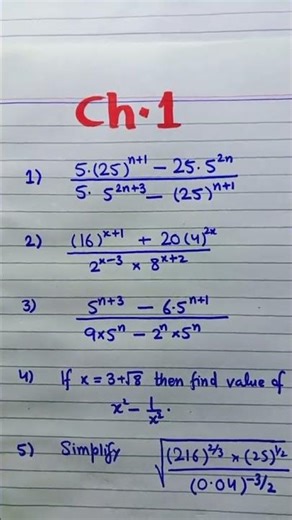 Ch.1
1) (5.(25)^(n+1) - 25. 5^(2n)) / (5. 5^(2n+3) - (25)^(n+1))
2) ((16)^(x+1) + 20(4)^(2x)) / (2^(x-3) × 8^(x+2))
3) (5^(n+3) - 6.5^(n+1)) / (9×5^n - 2^n ×5^n)
4) If x = 3+√8 then find value of
x² - 1/x².
5) Simplify √(((216)^(2/3) × (25)^(1/2)) / (0.04)^(-3/2))